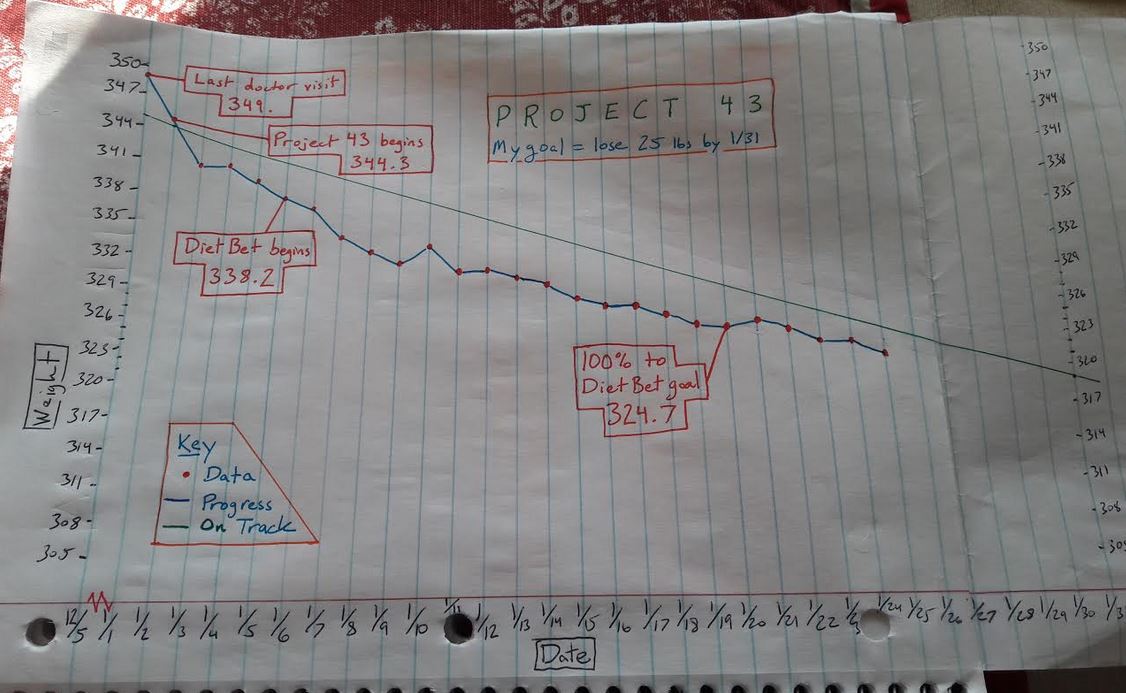 350
347
344
341
338
335
332
329
326
323
320
317
314
311
308
305
Weight
Last doctor visit
349.
Project 43 begins
344.3
PROJECT 43
My goal = lose 25 lbs by 1/31
Diet Bet begins
338.2
100% to
Diet Bet goal
324.7
Key
Data
Progress
On Track
350
347
344
341
338
335
332
329
326
323
320
317
314
311
308
12/5 1/1 1/2 1/3 1/4 1/5 1/6 1/7 1/8 1/9 1/10 1/11 1/12 1/13 1/14 1/15 1/16 1/17 1/18 1/19 1/20 1/21 1/22 1/24 1/25 1/26 1/27 1/28 1/29 1/30
Date